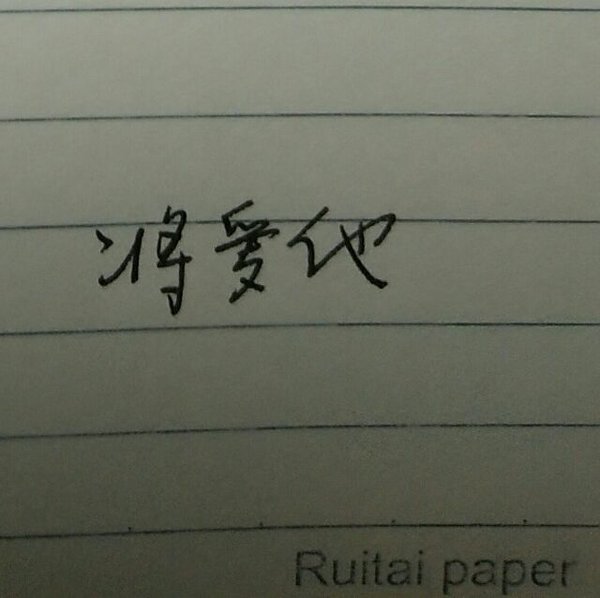 将爱他
Ruitai paper